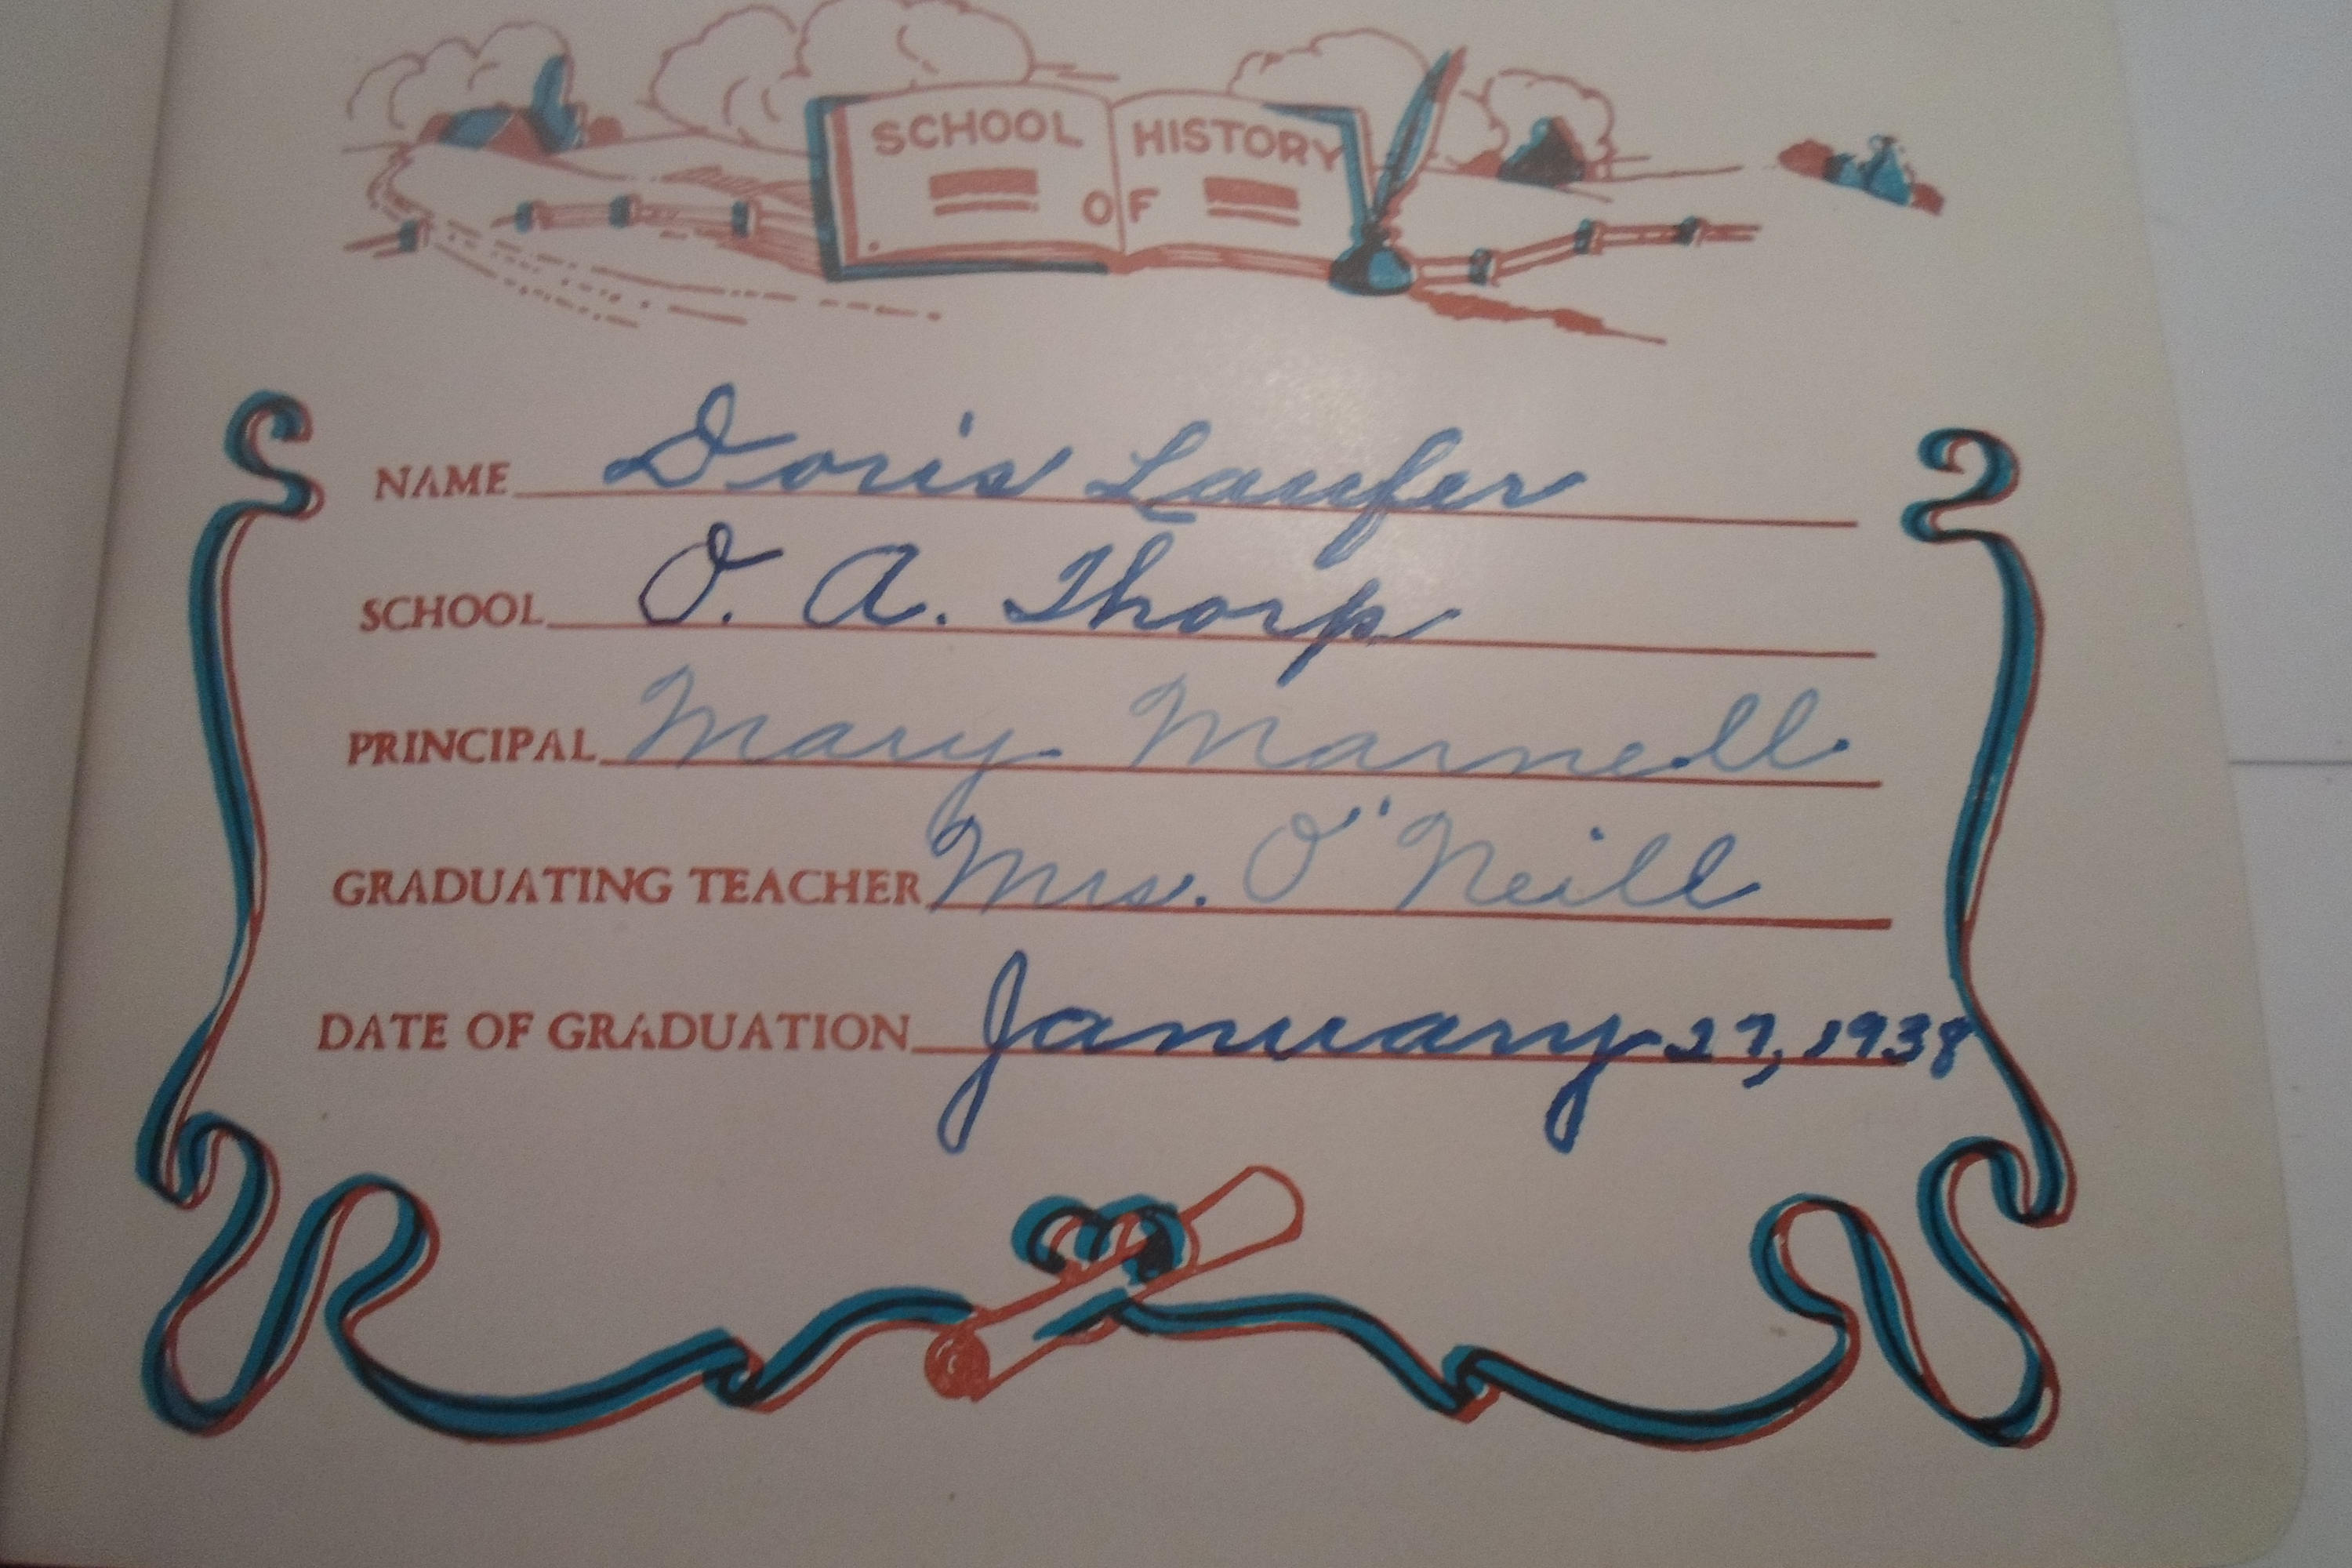 SCHOOL HISTORY
OF
NAME Doris Laufer
SCHOOL O. A. Thorp
PRINCIPAL Mary Marnell
GRADUATING TEACHER Mrs. O'Neill
DATE OF GRADUATION January 27, 1938